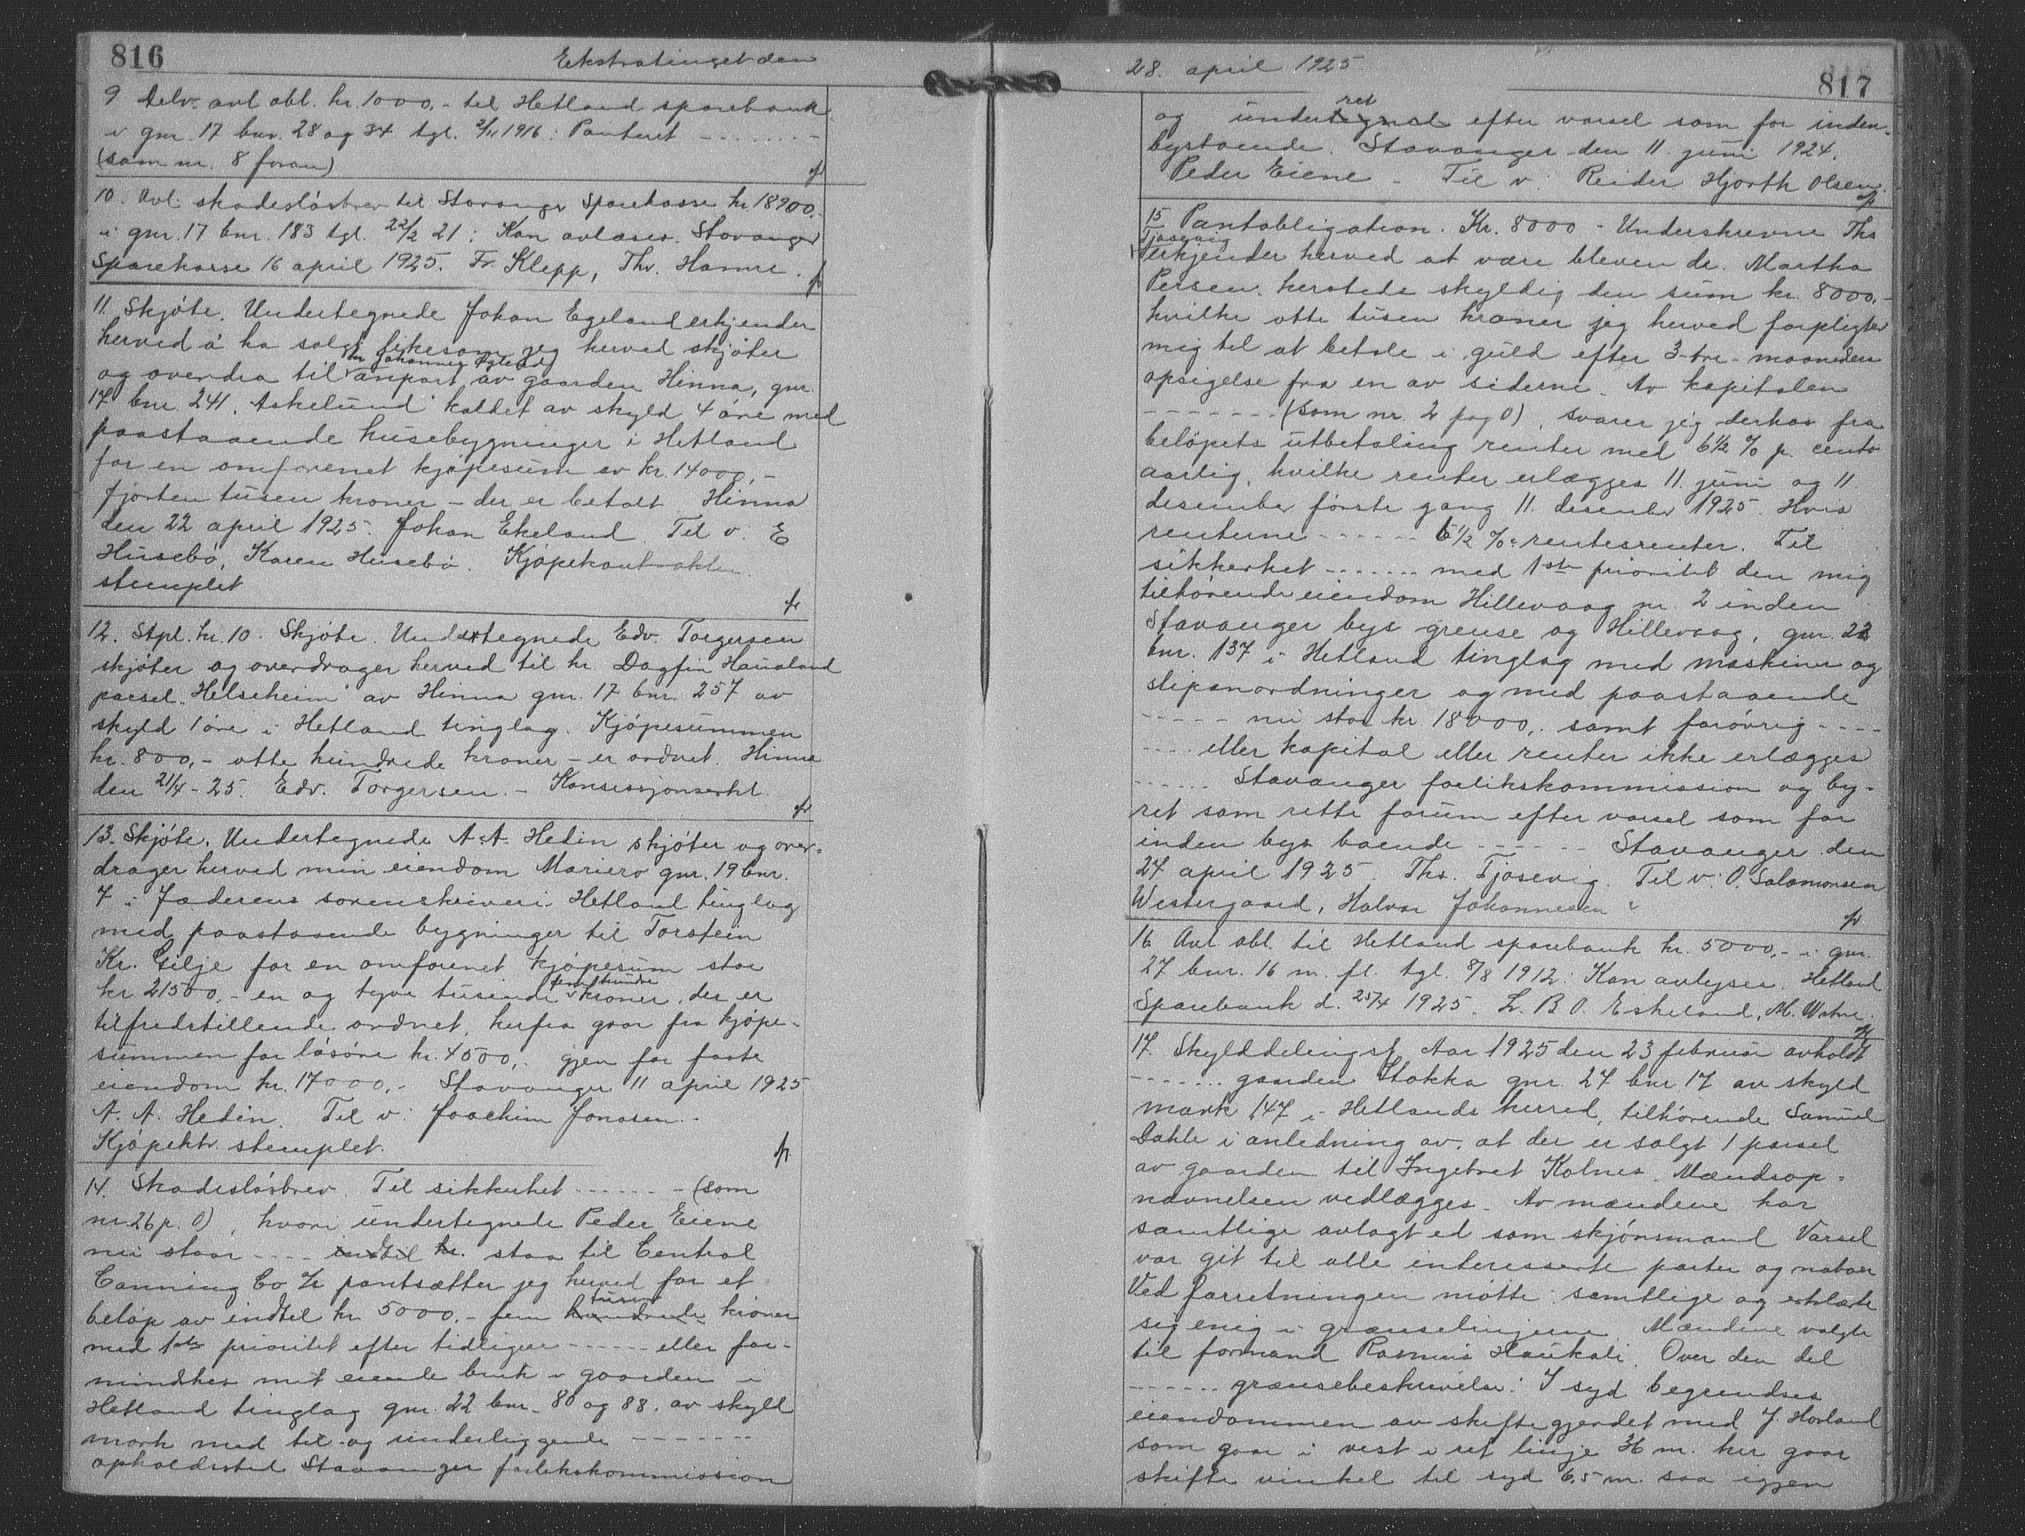 816
Ekstratinget den
9 Delv. avl obl. kr. 1000,- til Hetland sparebank
i gnr. 17 bnr. 28 og 34 tgl. 2/11 1916: Panteret - - - - - - -
(som nr. 8 foran)
10. Avl. skadesløsbrev til Stavanger Sparekasse kr. 18900,-
i gnr. 17 bnr. 183 tgl. 22/2 21: Kan avlæses. Stavanger
Sparekasse 16 april 1925. Fr. Klepp, Thv. Hamre.
11. Skjøte. Undertegnede Johan Egeland erkjender
herved å ha solgt likesom jeg herved skjøter
hr Johannes Egeland
og overdra til anpart av gaarden Hinna, gnr.
17 bnr. 241. Askelund kaldet av skyld 4 øre med
paastaaende husebygninger i Hetland
for en omforenet kjøpesum av kr. 14000,-
fjorten tusen kroner - der er betalt Hinna
den 22 april 1925. Johan Ekeland. Til v. E
Husebø, Karen Husebø. Kjøpekontrakten
stemplet
12. Stpl. kr. 10. Skjøte. Undertegnede Edv. Torgersen
skjøter og overdrager herved til hr. Dagfin Haualand
parsel "Helseheim" av Hinna gnr. 17 bnr. 257 av
skyld 1 øre i Hetland tinglag. Kjøpesummen
kr. 800,- otte hundrede kroner - er ordnet. Hinna
den 21/4-25. Edv. Torgersen. - Konsesjonserkl.
13. Skjøte. Undertegnede A. A. Hedin skjøter og over-
drager herved min eiendom Mariero gnr. 19 bnr.
7 i Jæderens sorenskriveri Hetland tinglag
med paastaaende bygninger til Torstein
Kr. Gilje for en omforenet kjøpesum stor
fem hundre
kr 21500,- en og tyve tusinde kroner, der er
tilfredstillende ordnet, herfra gaar fra kjøpe-
summen for løsøre kr. 4500,- igjen for faste
eiendom kr. 17000,- Stavanger 11 april 1925
A. A. Hedin. Til v: Joachim Jonasen.
Kjøpektr. stemplet.
14. Skadesløsbrev. Til sikkerhet - - - - - - (som
nr. 26 p. 0), hvori undertegnede Peder Eiene
nu staar - - - - indtil kr. staa til Central
Canning Co A/S pantsætter jeg herved for et
tusen
beløp av indtil kr. 5000,- fem hundrede kroner
med 1ste prioritet efter tidligere - - - - - eller for-
mindsker mit eiende bruk i gaarden i
Hetland tinglag gnr. 22 bnr. 80 og 88. av skyld
mark med til og underliggende - - - - - - -
opholdssted Stavanger forlikskommission
28. april 1925
817
ret
og undertegnede efter varsel som for inden-
bystaende. Stavanger den 11. juni 1924.
Peder Eiene - Til v: Reider Hjorth Olsen.
15 Pantobligation. Kr. 8000 - Underskrevne Ths
Tjosevig
erkjender herved at være bleven dr. Martha
Persen, herstede skyldig den sum kr. 8000,-
hvilke otte tusen kroner jeg herved forpligter
mig til at betale i guld efter 3-tre- maaneders
opsigelse fra en av siderne. Av kapitalen
- - - - - - - (som nr. 2 pag 0), svarer jeg derhos fra
beløpets utbetaling renter med 6 1/2 % p. cento
aarlig, hvilke renter erlægges 11. juni og 11
desember første gang 11. desember 1925. Hvis
renterne - - - - - - 6 1/2 % rentesrenter. Til
sikkerhet - - - - - - med 1ste prioritet den mig
tilhørende eiendom Hillevaag nr. 2 inden
Stavanger bys grense og Hillevaag, gnr. 22
bnr. 137 i Hetland tinglag med maskiner og
slipanordninger og med paastaaende
- - - - - nu stor kr. 18000,. samt forøvrig - - - -
- - - - eller kapital eller renter ikke erlægges
- - - - - Stavanger forlikskommission og by-
ret som rette forum efter varsel som for
inden bys boende - - - - - - Stavanger den
27 april 1925. Ths. Tjosevig. Til v: O. Salomonsen
Westergaard, Halvor Johannesen
16 Avl. obl. til Hetland sparebank kr. 5000,- i gnr.
27 bnr. 16 m. fl. tgl. 8/8 1912: Kan avlyses. Hetland
Sparebank d. 25/4 1925. L. B. O. Eskeland, M. Watne.
17. Skylddelingsf. Aar 1925 den 23 februar avholdt
- - - - - - gaarden Stokka gnr. 27 bnr 17 av skyld
mark 147 i Hetlands herred, tilhørende Samuel
Dahle i anledning av, at der er solgt 1 parsel
av gaarden til Ingebret Kolnes. Mændsop-
nævnelsen vedlægges. Av mændene har
samtlige avlagt ed som skjønsmand Varsel
var git til alle interesserte parter og naboer
Ved forretningen møtte: samtlige og erklærte
sig enig i grænselinjerne. Mændene valgte
til formand Rasmus Haukali. Over den del
- - - - - - grænsebeskrivelse: I syd begrendses
eiendommen av skiftegjerdet med J. Horland
som gaar i vest i ret linje 36 m. her gaar
skifte vinkel til syd 6,5 m. saa igjen